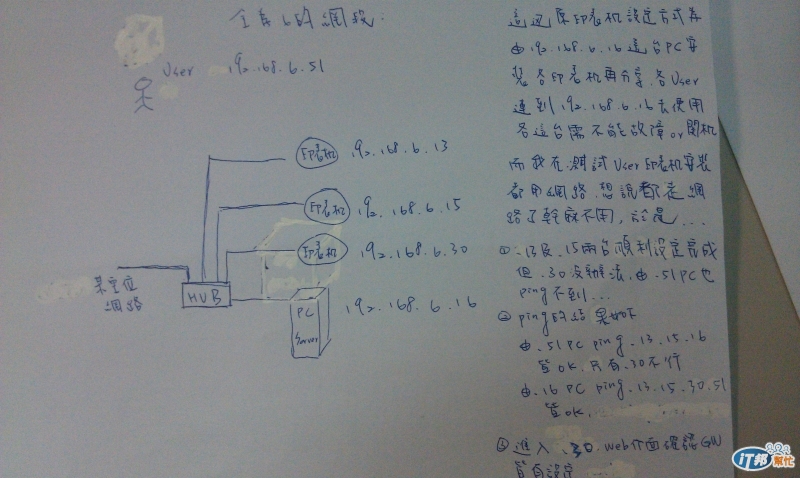 全為6的網段:
User 192.168.6.51
印表机 192.168.6.13
印表机 192.168.6.15
印表机 192.168.6.30
某單位
網路
HUB
PC
Server
192.168.6.16
這边原印表机設定方式為
由192.168.6.16這台PC安
裝各印表机再分享,各User
連到192.168.6.16去使用
各這台需不能故障or関机
而我在測試User印表机安裝
都用網路,想說都走網
路了幹麻不用,於是...
① .13及.15兩台順利設定完成
但.30沒辦法,由.51PC也
ping不到...
② ping的結果如下
由.51PC ping .13.15.16
皆OK,只有.30不行
由.16PC ping .13.15.30.51
皆OK.
③ 進入.30.web介面確認GW
皆有設定
iT邦
幫忙